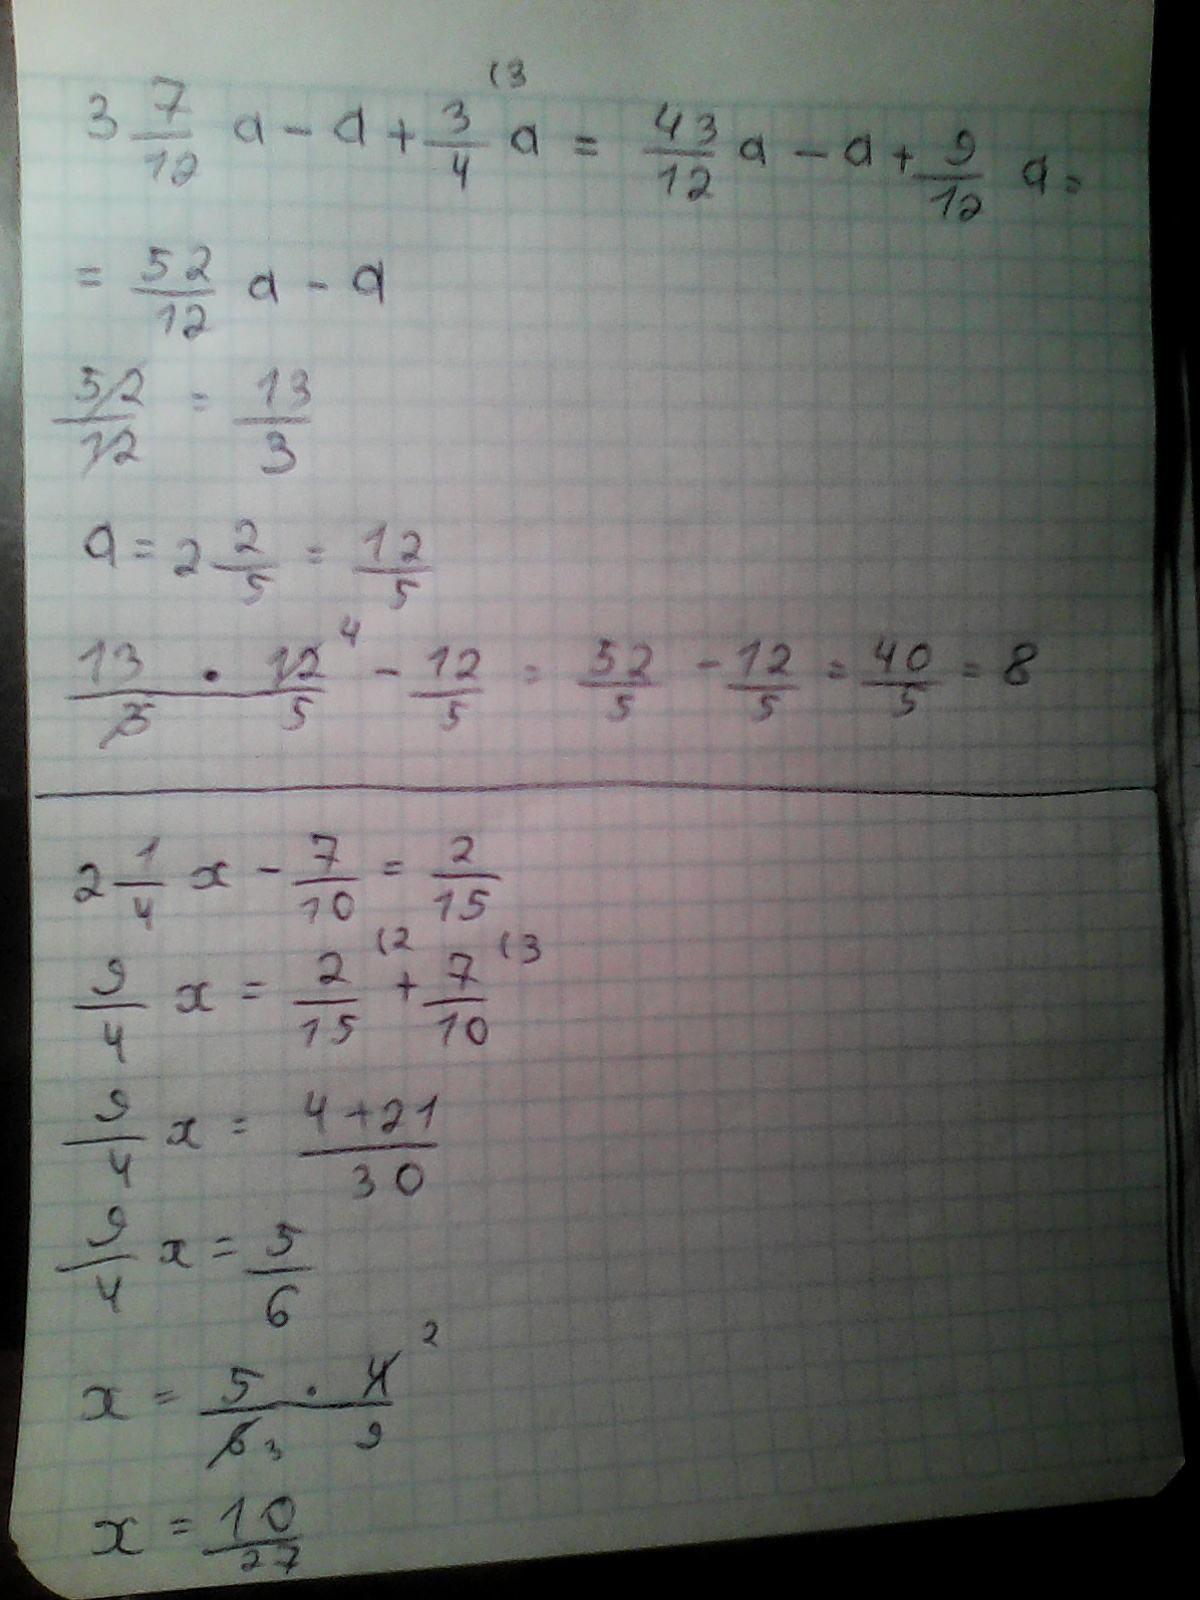 3 7/12 a - a + 3/4 (3 a = 43/12 a - a + 9/12 a =
= 52/12 a - a
52/12 = 13/3
a = 2 2/5 = 12/5
13 · 12 4 / 3 5 - 12/5 = 52/5 - 12/5 = 40/5 = 8
2 1/4 x - 7/10 = 2/15
9/4 x = 2/15 (2 + 7/10 (3
9/4 x = 4+21/30
9/4 x = 5/6
x = 5 · 4 2 / 6 3 9
x = 10/27